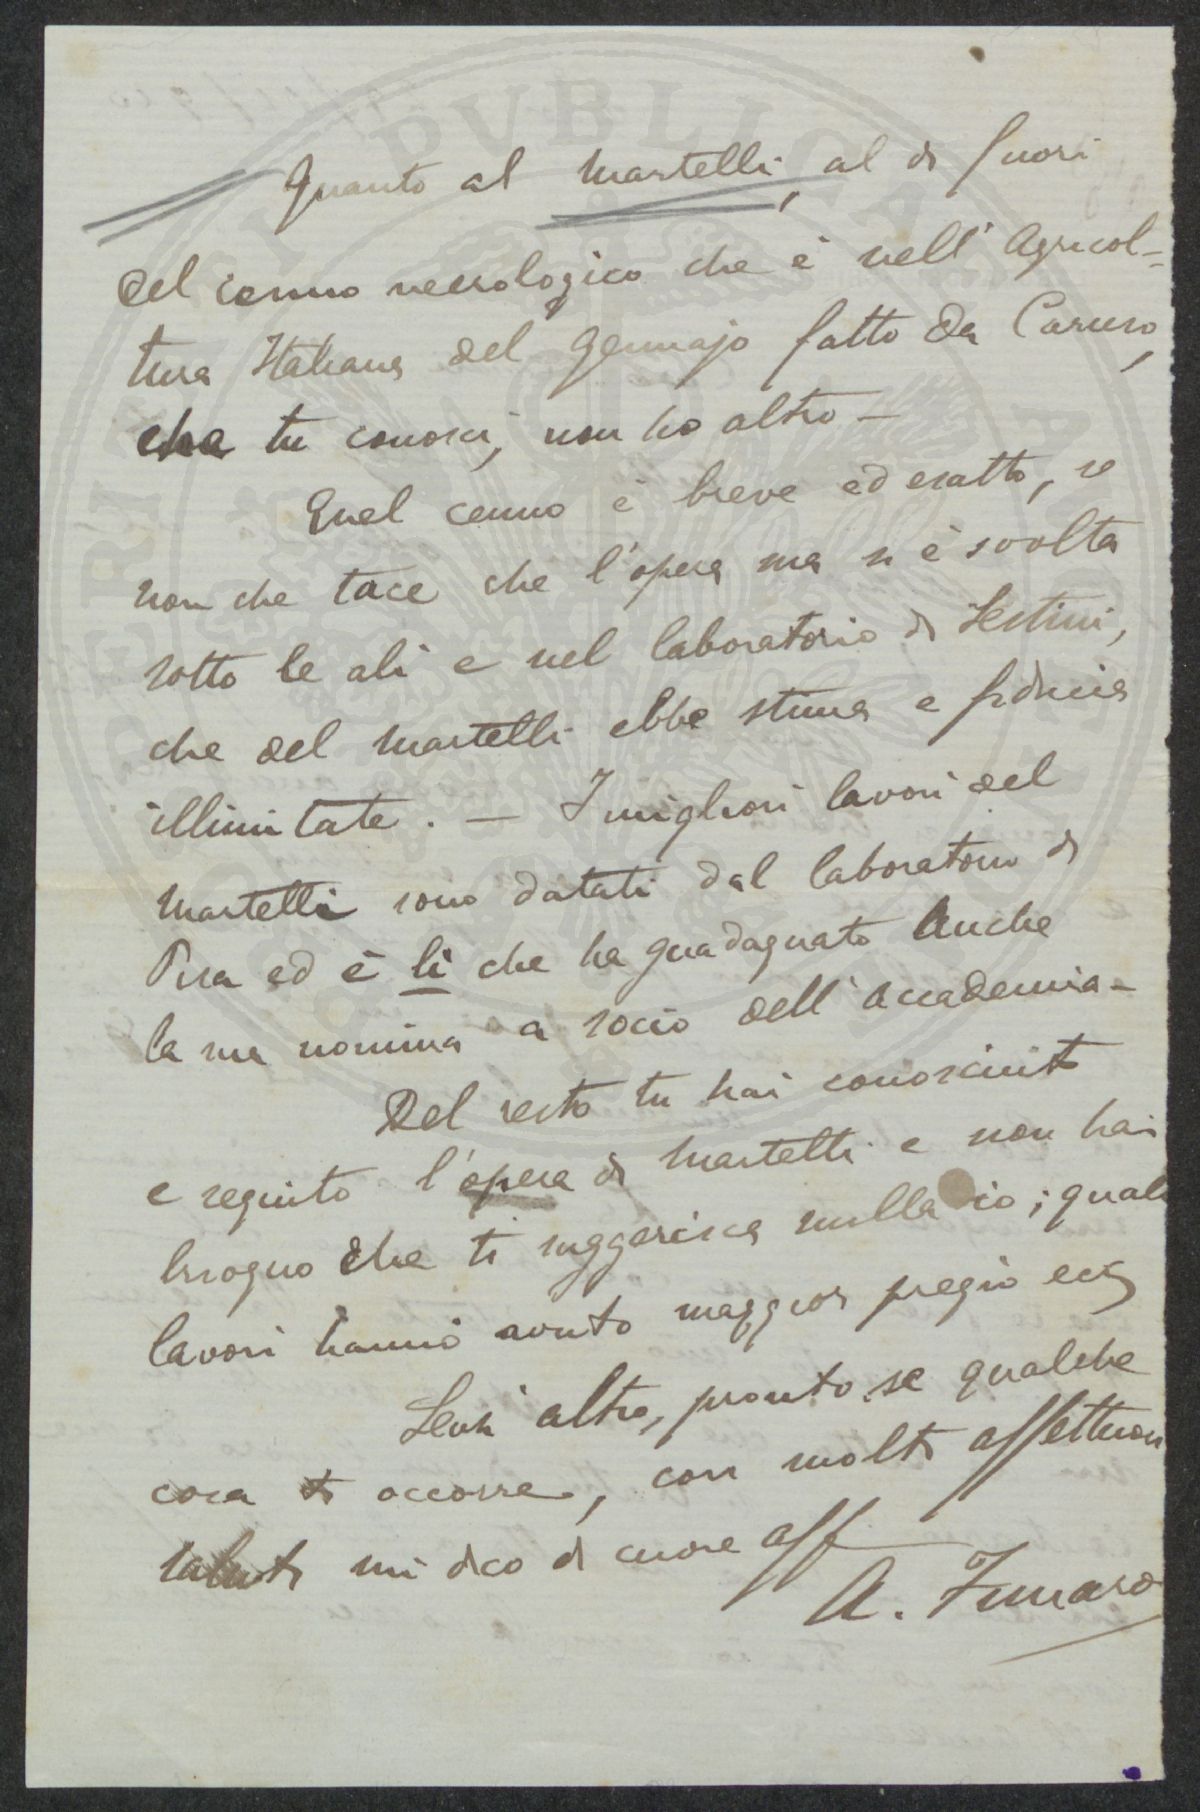 Quanto al Martelli, al di fuori
del cenno necrologico che è nell'Agricol=
tura Italiana del Gennajo fatto da Caruso,
che tu conosci, non ho altro —
Quel cenno è breve ed esatto, se
non che tace che l'opera sua si è svolta
sotto le ali e nel laboratorio di Sestini,
che del Martelli ebbe stima e fiducia
illimitate. — I migliori lavori del
Martelli sono datati dal laboratorio di
Pisa ed è lì che ha guadagnato anche
la sua nomina a socio dell'accademia —
Del resto tu hai conosciuto
e seguito l'opera di Martelli e non hai
bisogno che ti suggerisca nulla io; quali
lavori hanno avuto maggior pregio ecc
Senz'altro, pronto se qualche
cosa ti occorre, con molti affettuosi
saluti mi dico di cuore aff
A. Funaro